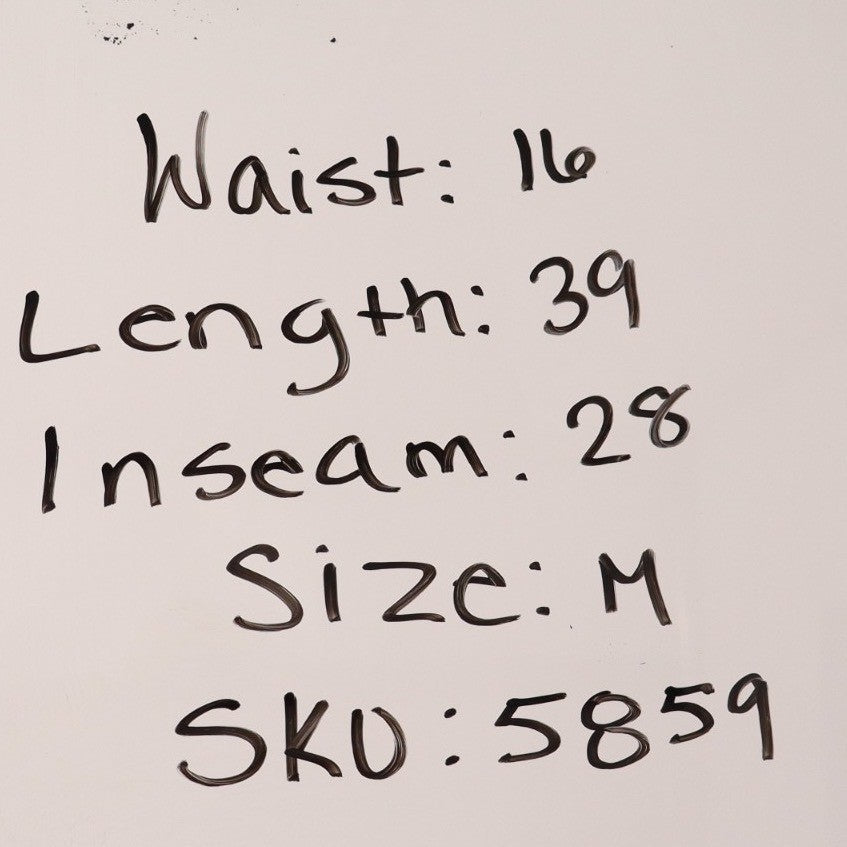 Waist: 16
Length: 39
Inseam: 28
Size: M
SKU: 5859